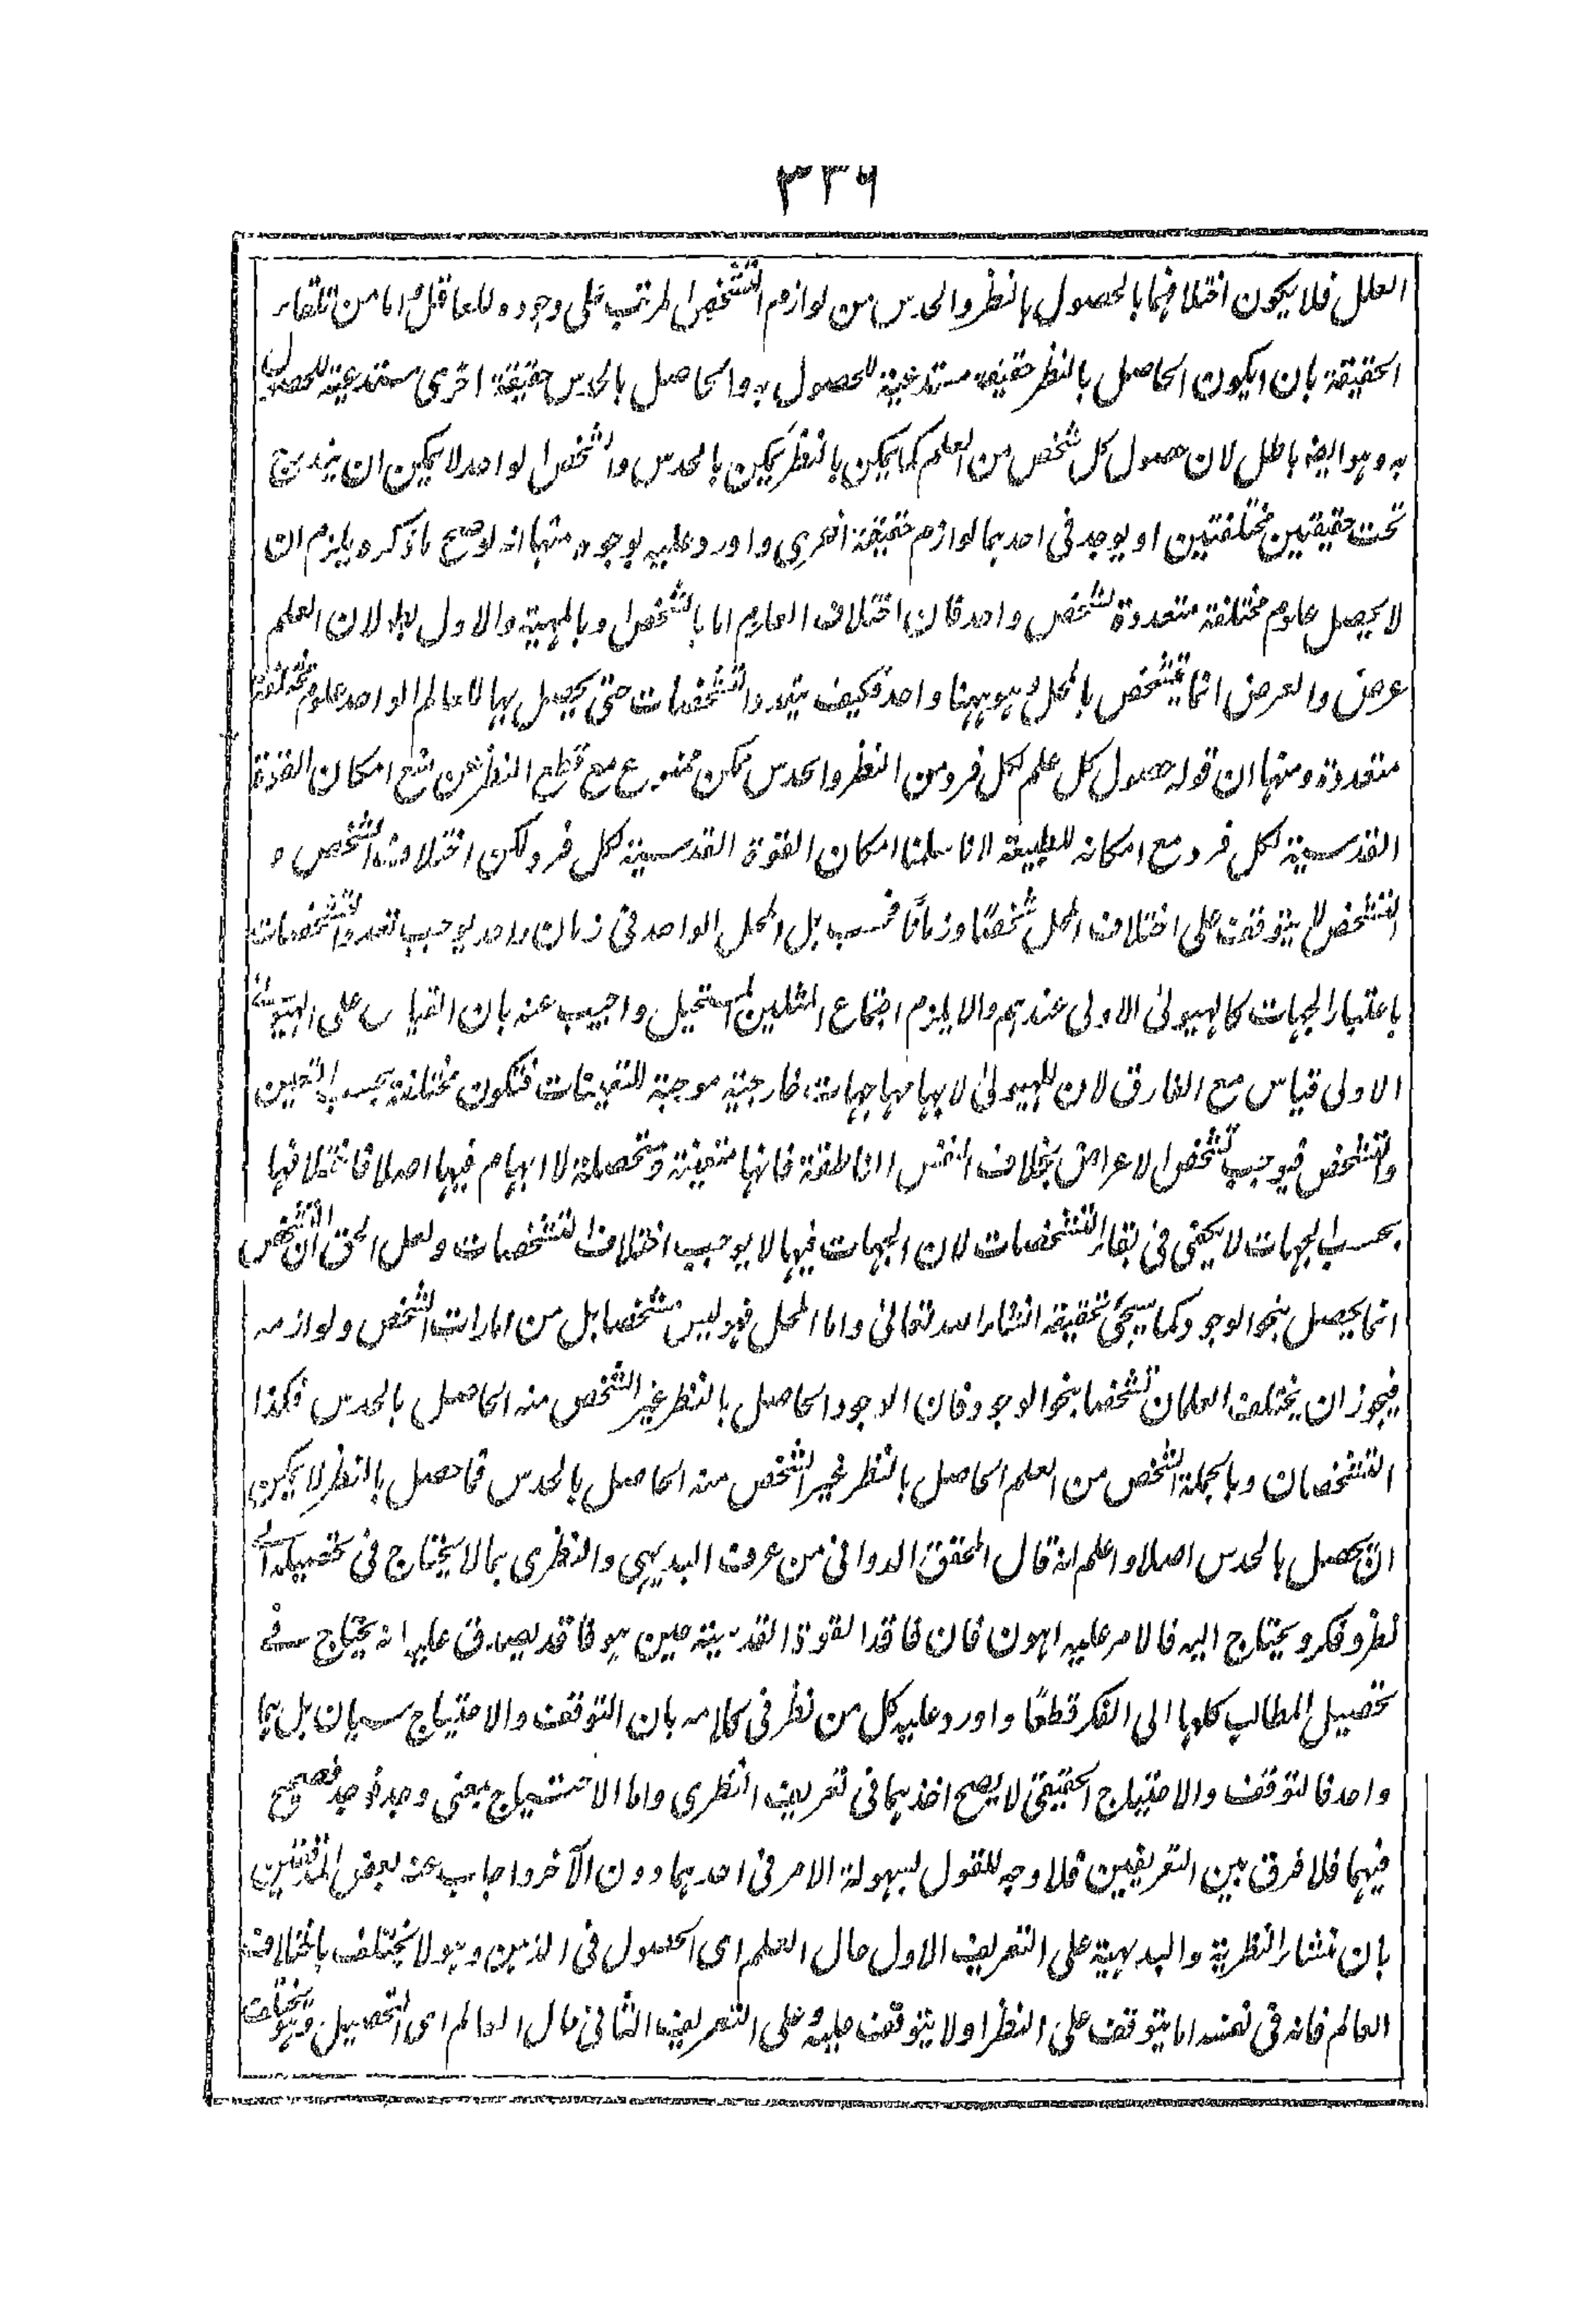 ٣٣٦
العلل فلا يكون اختلافهما بالحصول بالنظر والحدس من لوازم التشخص المرتب على وجوده للعاقل واما من تلقاء
الحقيقة بان يكون الحاصل بالنظر حقيقة مستدعية للحصول به والحاصل بالحدس حقيقة اخرى مستدعية للحصول
به وهو ايضا باطل لان حصول كل شخص من العلم كما يمكن بالنظر يمكن بالحدس والشخص الواحد لا يمكن ان يندرج
تحت حقيقتين مختلفتين او يوجد فى احدهما لوازم حقيقة اخرى واورد عليه بوجوه منها انه لو صح ما ذكره يلزم ان
لا يحصل علوم مختلفة متعددة لشخص واحد فان اختلاف العلوم اما بالتشخص او بالمهية والاول بط لان العلم
عرض والعرض انما يتشخص بالمحل وهو ههنا واحد فكيف يتعدد التشخصات حتى يحصل بها للعالم الواحد علوم مختلفة
متعددة ومنها ان قوله حصول كل علم لكل فرد من النظر والحدس ممكن ممنوع مع قطع النظر عن منع امكان القوة
القدسية لكل فرد مع امكانه للطبيعة لانا سلمنا امكان القوة القدسية لكل فرد لكن اختلاف الشخص و
التشخص لا يتوقف على اختلاف المحل شخصًا وزمانًا فحسب بل المحل الواحد فى زمان واحد يوجب تعدد التشخصات
باعتبار الجهات كالهيولى الاولى عندهم والا يلزم اجتماع المثلين المستحيل واجيب عنه بان القياس على الهيولى
الاولى قياس مع الفارق لان للهيولى لابهامها جهات خارجية موجبة للتعينات فتكون مختلفة بحسب التعين
والتشخص فيوجب تشخص الاعراض بخلاف النفس الناطقة فانها متعينة ومتحصلة لا ابهام فيها اصلا فاختلافها
بحسب الجهات لا يكفى فى بقاء التشخصات لان الجهات فيها لا يوجب اختلاف التشخصات ولعل الحق ان التشخص
انما يحصل بنحو الوجود كما سيجئ تحقيقه انشاء الله تعالى واما المحل فهو ليس مشخصا بل من امارات التشخص ولوازمه
فيجوز ان يختلف العلمان تشخصا بنحو الوجود فان الوجود الحاصل بالنظر غير الشخص منه الحاصل بالحدس فكذا
التشخصان وبالجملة الشخص من العلم الحاصل بالنظر غير الشخص منه الحاصل بالحدس فما حصل بالنظر لا يمكن
ان يحصل بالحدس اصلا واعلم انه قال المحقق الدوانى من عرف البديهى والنظرى بما لا يحتاج فى تحصيله الى
نظر وفكر ويحتاج اليه فالامر عليه اهون فان فاقد القوة القدسية حين هو فاقد يصدق عليه انه يحتاج فى
تحصيل المطالب كلها الى الفكر قطعًا واورد عليه كل من نظر فى كلامه بان التوقف والاحتياج سيان بل هما
واحد فالتوقف والاحتياج الحقيقى لا يصح اخذهما فى تعريف النظرى واما الاحتياج بمعنى وجد فوجد فصحيح
فيهما فلا فرق بين التعريفين فلا وجه للقول بسهولة الامر فى احدهما دون الآخر واجاب عنه بعض المدققين
بان منشاء النظرية والبديهية على التعريف الاول حال العلم اى الحصول فى الذهن وهو لا يختلف باختلاف
العالم فانه فى نفسه اما يتوقف على النظر او لا يتوقف عليه وعلى التعريف الثانى حال العالم اى التحصيل وهو يختلف